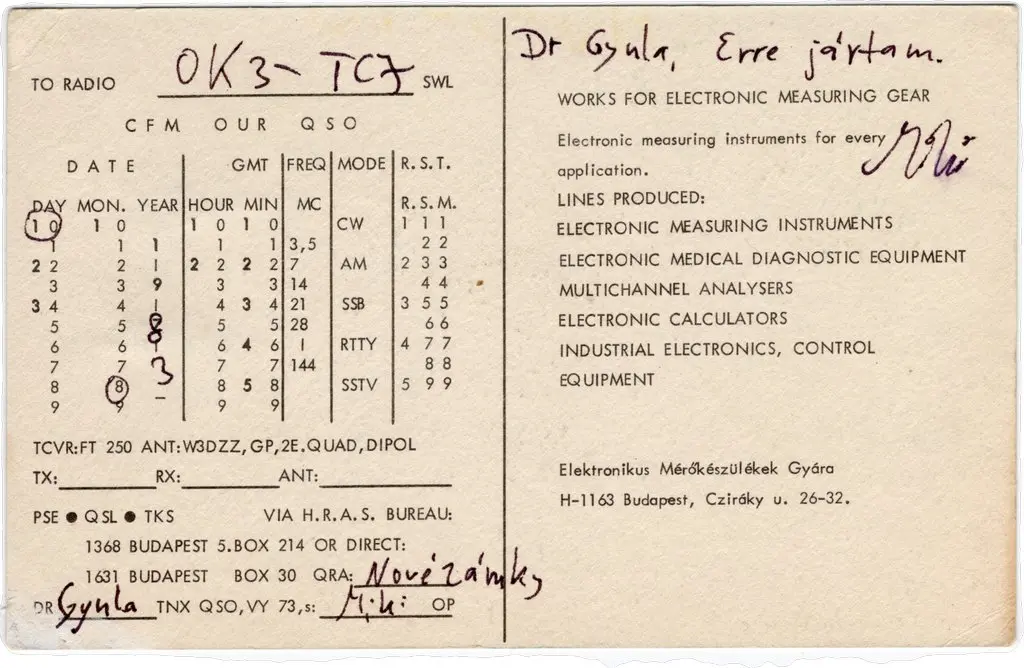 TO RADIO OK3-TC7 SWL
CFM OUR QSO
DATE GMT FREQ MODE R.S.T.
DAY MON. YEAR HOUR MIN MC R.S.M.
1 0 1 0 1 0 1 0 CW 1 1 1
1 1 1 1 1 3,5 2 2
2 2 2 1 2 2 2 2 7 AM 2 3 3
3 3 9 3 3 14 4 4
3 4 4 1 4 3 4 21 SSB 3 5 5
5 5 8 5 5 28 6 6
6 6 1 6 4 6 1 RTTY 4 7 7
7 7 3 7 7 144 8 8
8 8 – 8 5 8 SSTV 5 9 9
9 9 9 9
TCVR:FT 250 ANT:W3DZZ,GP,2E.QUAD,DIPOL
TX: RX: ANT:
PSE ● QSL ● TKS VIA H.R.A.S. BUREAU:
1368 BUDAPEST 5.BOX 214 OR DIRECT:
1631 BUDAPEST BOX 30 QRA: Nové Zámky
DR Gyula TNX QSO,VY 73,s: Miki OP
Dr Gyula, Erre jártam.
WORKS FOR ELECTRONIC MEASURING GEAR
Electronic measuring instruments for every
application.
LINES PRODUCED:
ELECTRONIC MEASURING INSTRUMENTS
ELECTRONIC MEDICAL DIAGNOSTIC EQUIPMENT
MULTICHANNEL ANALYSERS
ELECTRONIC CALCULATORS
INDUSTRIAL ELECTRONICS, CONTROL
EQUIPMENT
Elektronikus Mérőkészülékek Gyára
H-1163 Budapest, Cziráky u. 26-32.